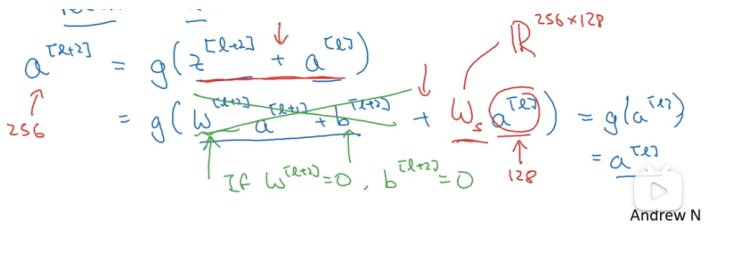 a^[l+2] = g(z^[l+2] + a^[l])
256
= g(W^[l+2] a^[l+1] + b^[l+2] + W_s a^[l]) = g(a^[l])
ℝ^256×128
= a^[l]
If W^[l+2]=0, b^[l+2]=0
128
Andrew N